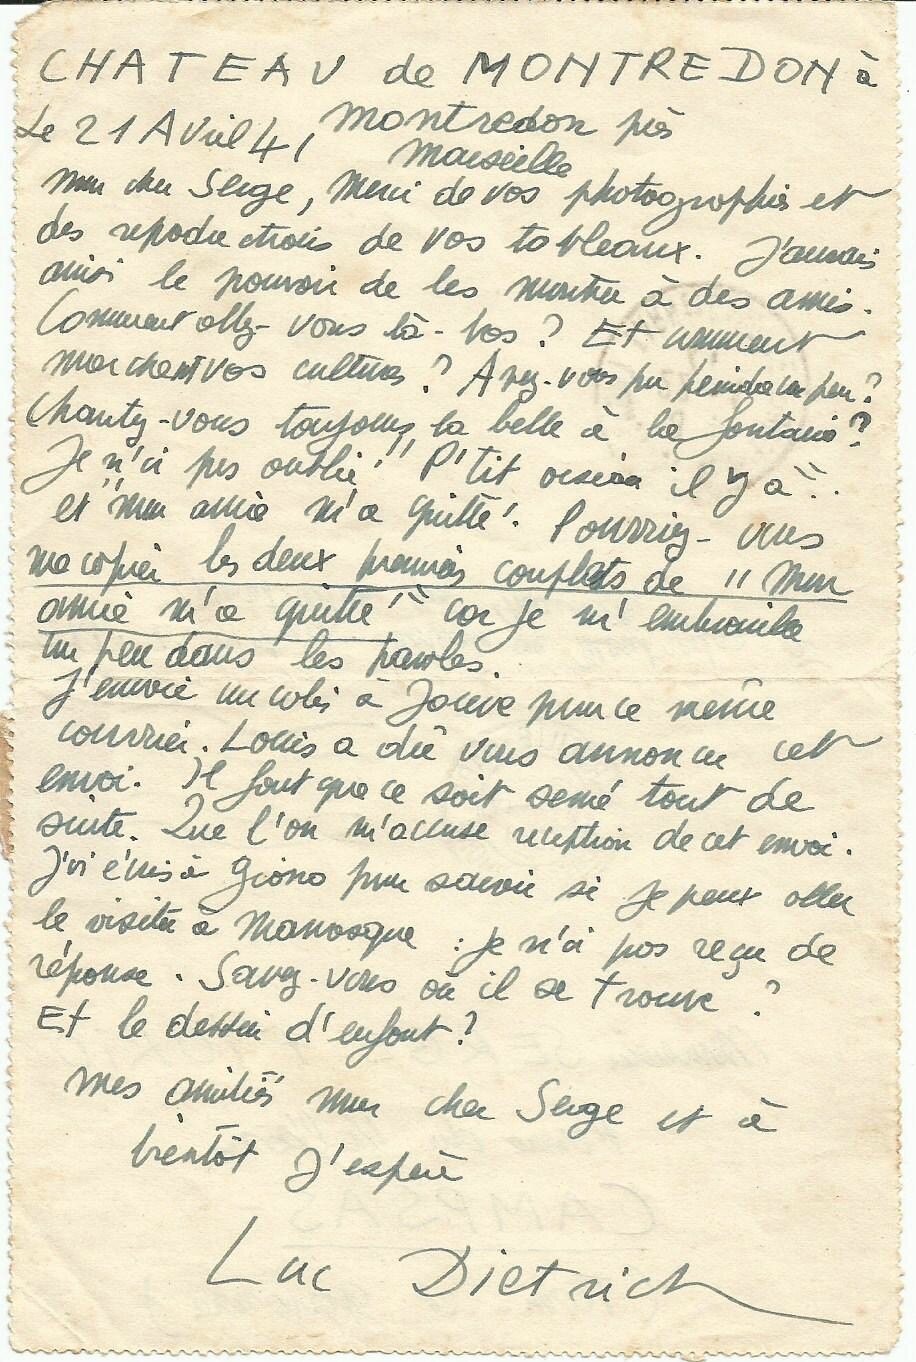 CHATEAU de MONTREDON à
Le 21 Avril 41, Montredon près
Marseille
Mon cher Serge, Merci de vos photographies et
des reproductions de vos tableaux. J'aurais
ainsi le pouvoir de les montrer à des amis.
Comment allez-vous là-bas? Et comment
marchent vos cultures? Avez-vous pu peindre un peu?
Chantez-vous toujours la belle à la fontaine?
Je n'ai pas oublié "P'tit oiseau il y a"..
et "mon amie m'a quitté". Pourriez-vous
me copier les deux premiers couplets de "Mon
amie m'a quitté" car je m'embrouille
un peu dans les paroles.
J'envoie un colis à par ce même
courrier. Louis a dû vous annoncer cet
envoi. Il faut que ce soit semé tout de
suite. Que l'on m'accuse réception de cet envoi.
J'ai écris à Giono pour savoir si je peux aller
le visiter à Manosque : je n'ai pas reçu de
réponse. Savez-vous où il se trouve?
Et le dessin d'enfant?
Mes amitiés mon cher Serge et à
bientôt j'espère
Luc Dietrich
CAMPSAS